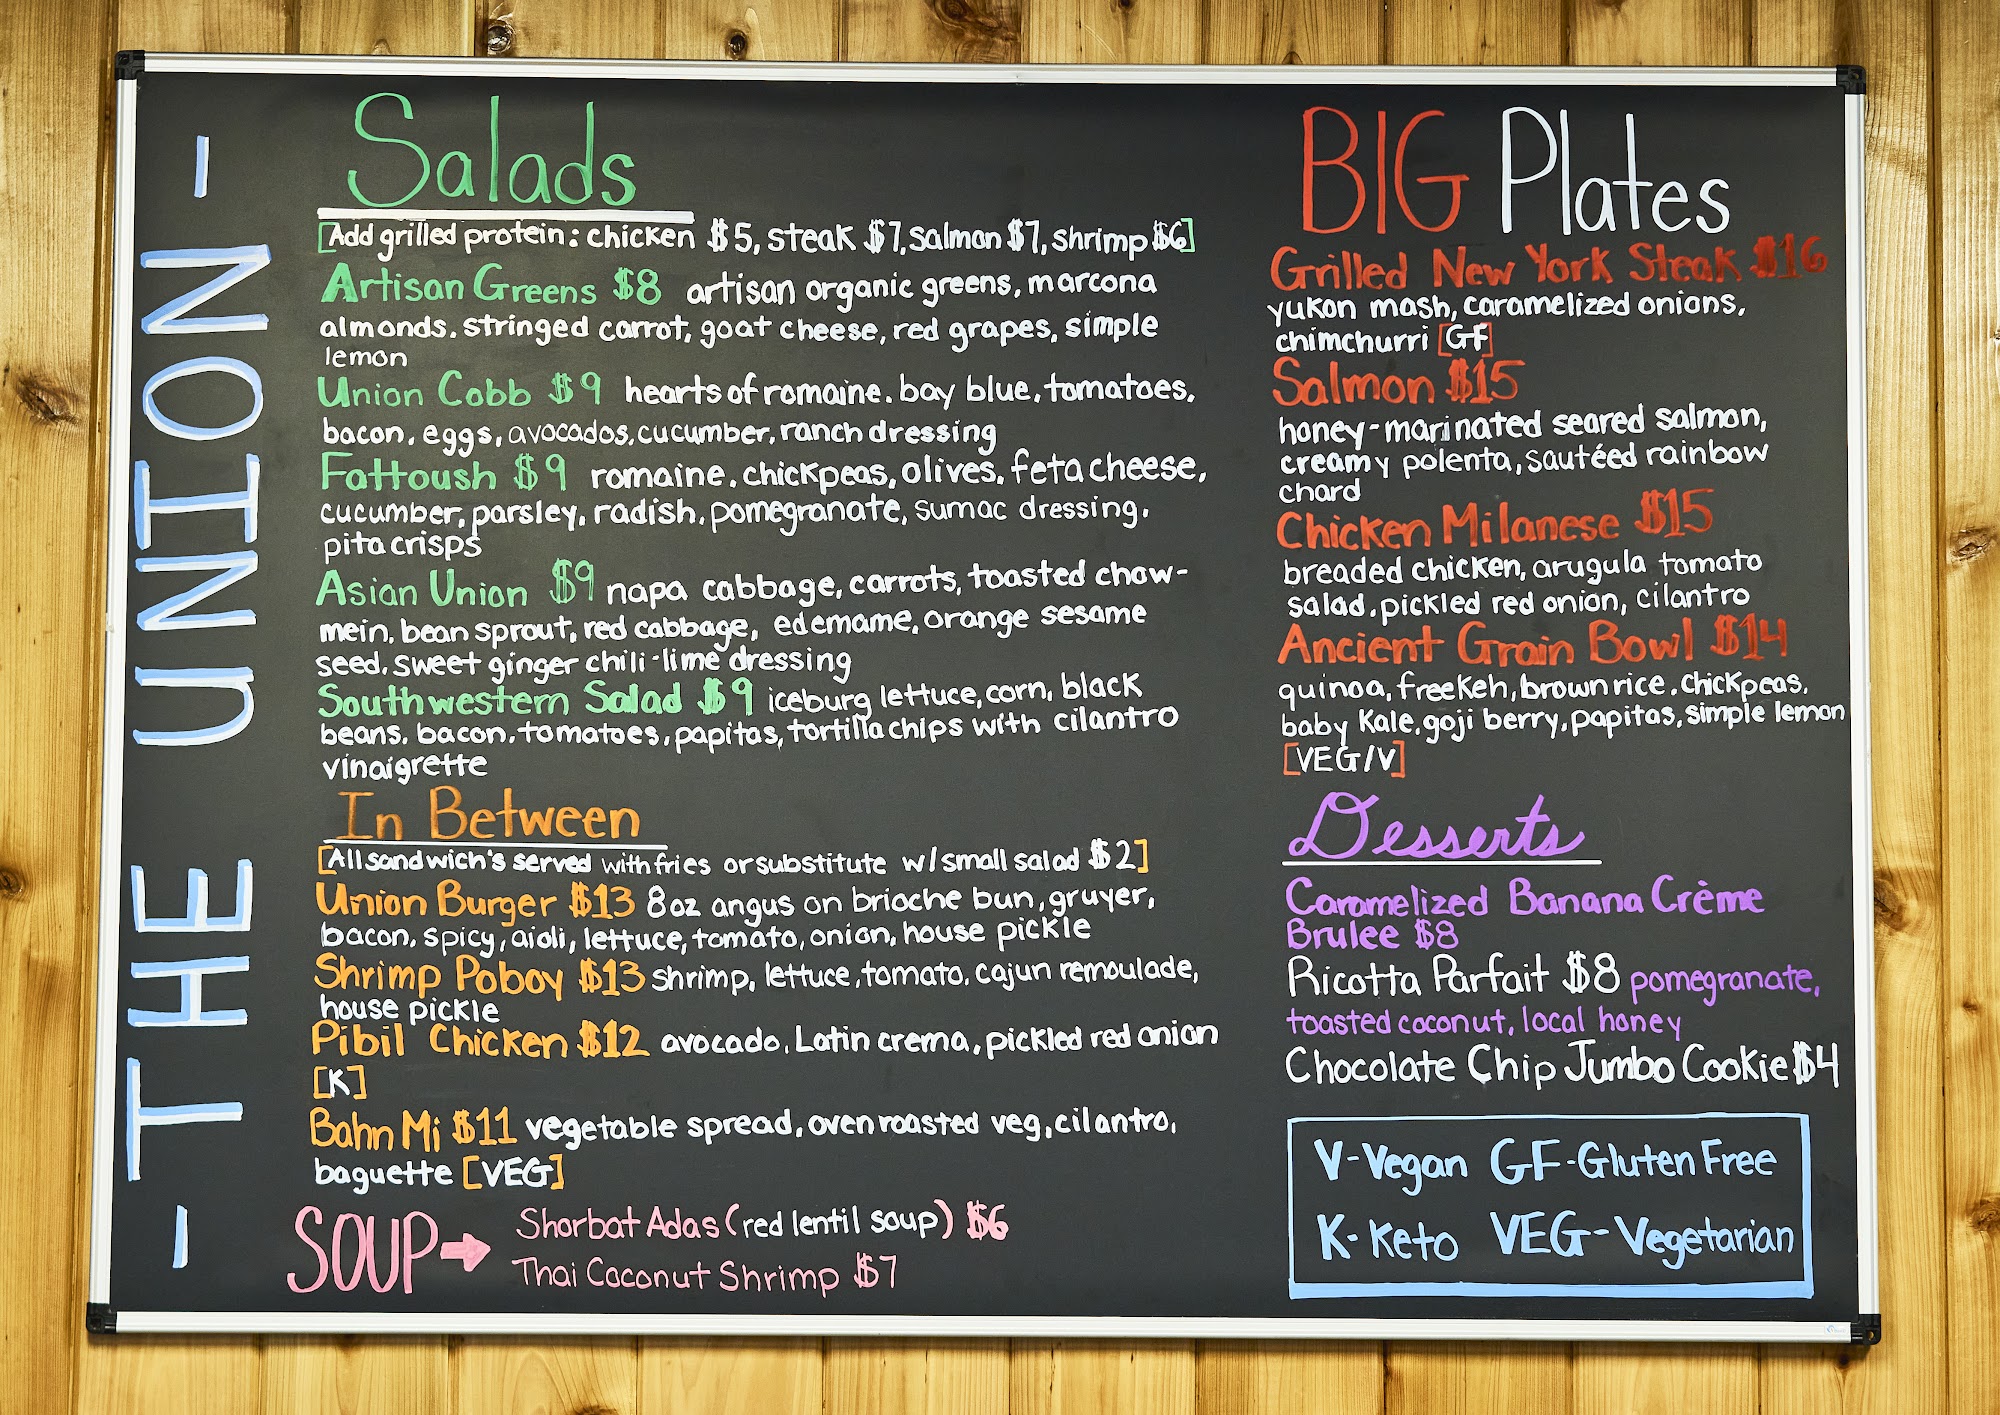 - THE UNION -
Salads
[Add grilled protein: chicken $5, steak $7, salmon $7, shrimp $6]
Artisan Greens $8 artisan organic greens, marcona
almonds, stringed carrot, goat cheese, red grapes, simple
lemon
Union Cobb $9 hearts of romaine, bay blue, tomatoes,
bacon, eggs, avocados, cucumber, ranch dressing
Fattoush $9 romaine, chickpeas, olives, feta cheese,
cucumber, parsley, radish, pomegranate, sumac dressing,
pita crisps
Asian Union $9 napa cabbage, carrots, toasted chow-
mein, bean sprout, red cabbage, edemame, orange sesame
seed, sweet ginger chili-lime dressing
Southwestern Salad $9 iceburg lettuce, corn, black
beans, bacon, tomatoes, papitas, tortilla chips with cilantro
vinaigrette
In Between
[All sandwich's served with fries or substitute w/ small salad $2]
Union Burger $13 8oz angus on brioche bun, gruyer,
bacon, spicy, aioli, lettuce, tomato, onion, house pickle
Shrimp Poboy $13 shrimp, lettuce, tomato, cajun remoulade,
house pickle
Pibil Chicken $12 avocado, Latin crema, pickled red onion
[K]
Bahn Mi $11 vegetable spread, oven roasted veg, cilantro,
baguette [VEG]
SOUP → Shorbat Adas (red lentil soup) $6
Thai Coconut Shrimp $7
BIG Plates
Grilled New York Steak $16
yukon mash, caramelized onions,
chimchurri [GF]
Salmon $15
honey-marinated seared salmon,
creamy polenta, sautéed rainbow
chard
Chicken Milanese $15
breaded chicken, arugula tomato
salad, pickled red onion, cilantro
Ancient Grain Bowl $14
quinoa, freekeh, brown rice, chickpeas,
baby Kale, goji berry, papitas, simple lemon
[VEG/V]
Desserts
Caramelized Banana Crème
Brulee $8
Ricotta Parfait $8 pomegranate,
toasted coconut, local honey
Chocolate Chip Jumbo Cookie $4
V-Vegan GF-Gluten Free
K-Keto VEG-Vegetarian